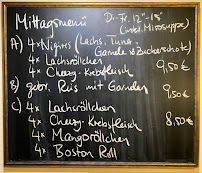 Mittagmenü Di.-Fr. 12⁰⁰-15⁰⁰
(inkl. Misosuppe)
A) 4x Nigiris (Lachs, Tuna,
Garnele & Zuckerschote)
4x Lachsröllchen
4x Cheezy-Krebsfleisch 9,50€
B) gebr. Reis mit Garnelen 9,50€
C) 4x Lachsröllchen
4x Cheezy-Krebsfleisch 8,50€
4x Mangoröllchen
4x Boston Roll